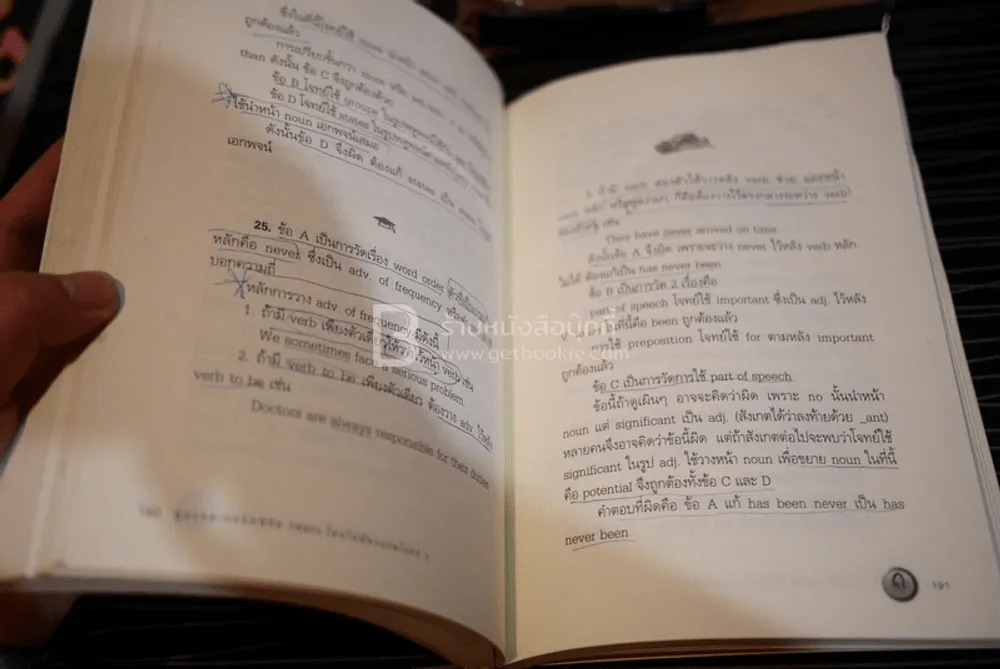 ถูกต้องแล้ว
การเปรียบขั้นกว่า
than ดังนั้น ข้อ C จึงถูกต้องด้วย
ข้อ B โจทย์ใช้ groups
ข้อ D โจทย์ใช้ states
ใช้นำหน้า noun เอกพจน์เสมอ
ดังนั้นข้อ D จึงผิด ต้องแก้ states เป็น
เอกพจน์
25. ข้อ A เป็นการวัดเรื่อง word order
หลักคือ never ซึ่งเป็น adv. of frequency
บอกความถี่
หลักการวาง adv. of frequency มีดังนี้
1. ถ้ามี verb เพียงตัวเดียวให้วางไว้หน้า verb เช่น
We sometimes face a serious problem.
2. ถ้ามี verb to be เพียงตัวเดียว ต้องวาง adv. ไว้หลัง
verb to be เช่น
Doctors are always responsible for their duties
3. ถ้ามี verb สองตัวให้วางหลัง verb ช่วย และหน้า
verb
They have never arrived on time
ดังนั้นข้อ A จึงผิด เพราะจะวาง never ไว้หลัง verb หลัก
ไม่ได้ ต้องแก้เป็น has never been
ข้อ B เป็นการวัด 2 เรื่องคือ
part of speech โจทย์ใช้ important ซึ่งเป็น adj. ไว้หลัง
ในที่นี้คือ been ถูกต้องแล้ว
การใช้ preposition โจทย์ใช้ for ตามหลัง important
ถูกต้องแล้ว
ข้อ C เป็นการวัดการใช้ part of speech
ข้อนี้ถ้าดูเผินๆ อาจจะคิดว่าผิด เพราะ no นั้นนำหน้า
noun แต่ significant เป็น adj. (สังเกตได้ว่าลงท้ายด้วย _ant)
หลายคนจึงอาจคิดว่าข้อนี้ผิด แต่ถ้าสังเกตต่อไปจะพบว่าโจทย์ใช้
significant ในรูป adj. ใช้วางหน้า noun เพื่อขยาย noun ในที่นี้
คือ potential จึงถูกต้องทั้งข้อ C และ D
คำตอบที่ผิดคือ ข้อ A แก้ has been never เป็น has
never been
191
B ร้านหนังสือบุ๊คกี้
www.getbookie.com